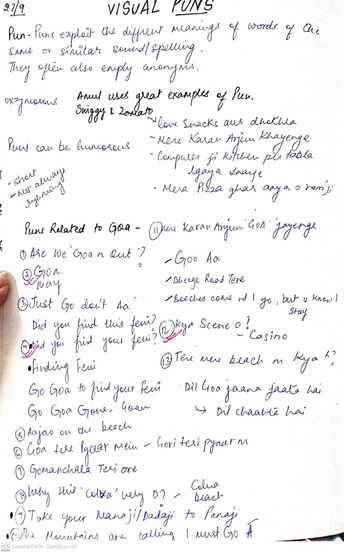 27/9
VISUAL PUNS
Pun - Puns exploit the different meanings of words of the
same or similar sound/spelling.
They often also employ
Amul uses great examples of Pun.
Swiggy & Zomato
- love snacks aur dhokhla
Puns can be humorous.
- Mere Karan Arjun Khayenge
- Computer ji kitchen pe taala
lgaya jaaye
- short
- Not always
rhyming
- Mera Pizza ghar aaya o ramji
Puns Related to GOA -
⑪ Mere Karan Arjun 'GOA' jayenge
① Are We 'Goa n Out'?
- Goo Aa
② Goa
may
- Bheege Road Tere
③ Just Go don't Aa
- Beaches come nd I go, but u know I
stay
Did you find this feni?
④ Did you find your feni?
⑫ Kya Scene O!
- Casino
• finding Feni
⑬ Tere mere beach m kya h?
Go Goa to find your Feni
Dil Goa jaana jaata hai
Go Goa Gone - Goan
→ Dil chaahta hai
⑤ Aajao on the beach
⑥ Goa tere Pyaar mein - Gori teri pyaar m
⑦ Gomanchala Teri ore
⑧ Why this 'Colva' very D? - Colva
beach
⑨ Take your Nanaji/Dadaji to Panaji
⑩ The Mountains are calling I must Go A
Scanned with CamScanner